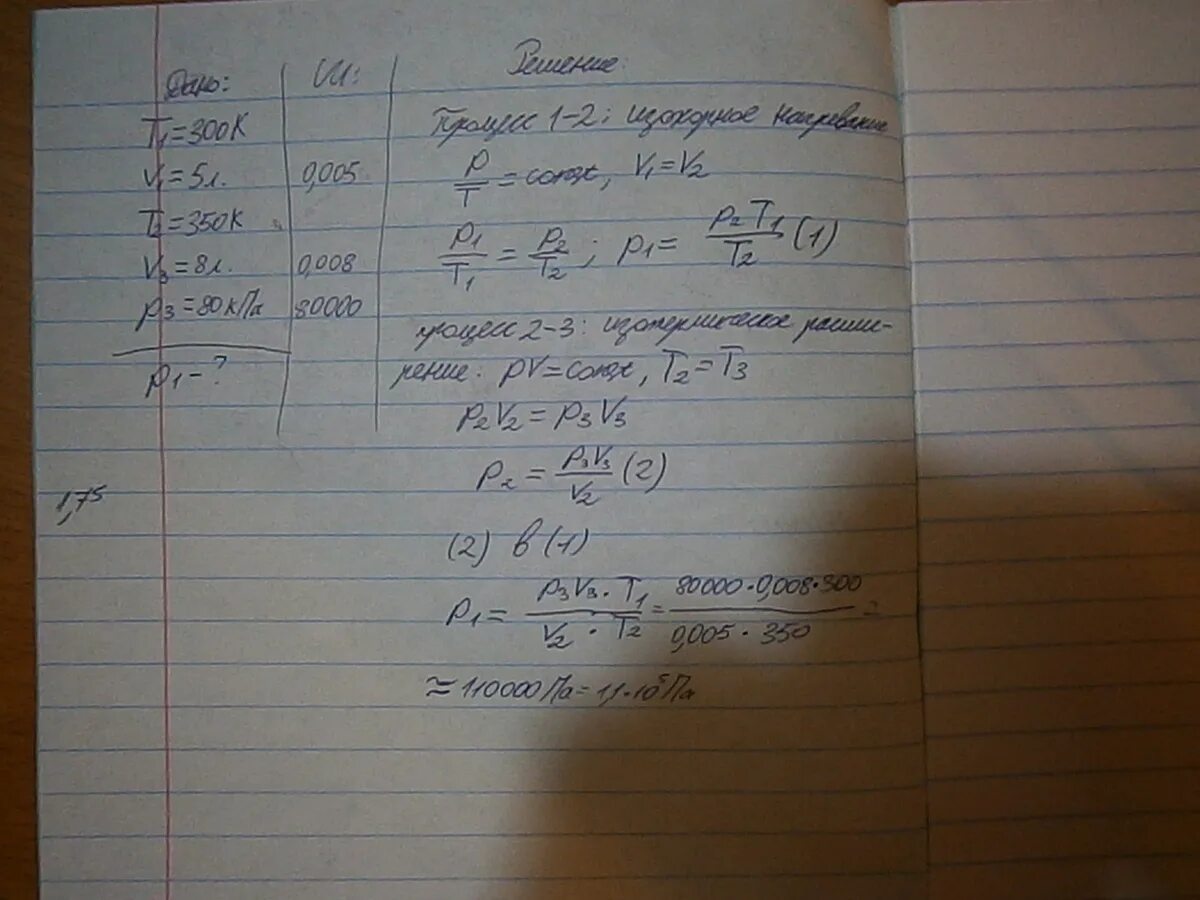 Дано:
T₁=300К
V₁=5л.
T₂=350К
V₃=8л.
p₃=80кПа
p₁-?
СИ:
0,005
0,008
80000
1,75
Решение:
Процесс 1-2: изохорное нагревание
p/T = const, V₁=V₂
p₁/T₁ = p₂/T₂; p₁= p₂T₁/T₂ (1)
процесс 2-3: изотермическое расши-
рение: pV=const, T₂=T₃
p₂V₂=p₃V₃
p₂ = p₃V₃/V₂ (2)
(2) в (1)
p₁= p₃V₃·T₁/V₂·T₂ = 80000·0,008·300/0,005·350 =
≈110000Па=1,1·10⁵Па